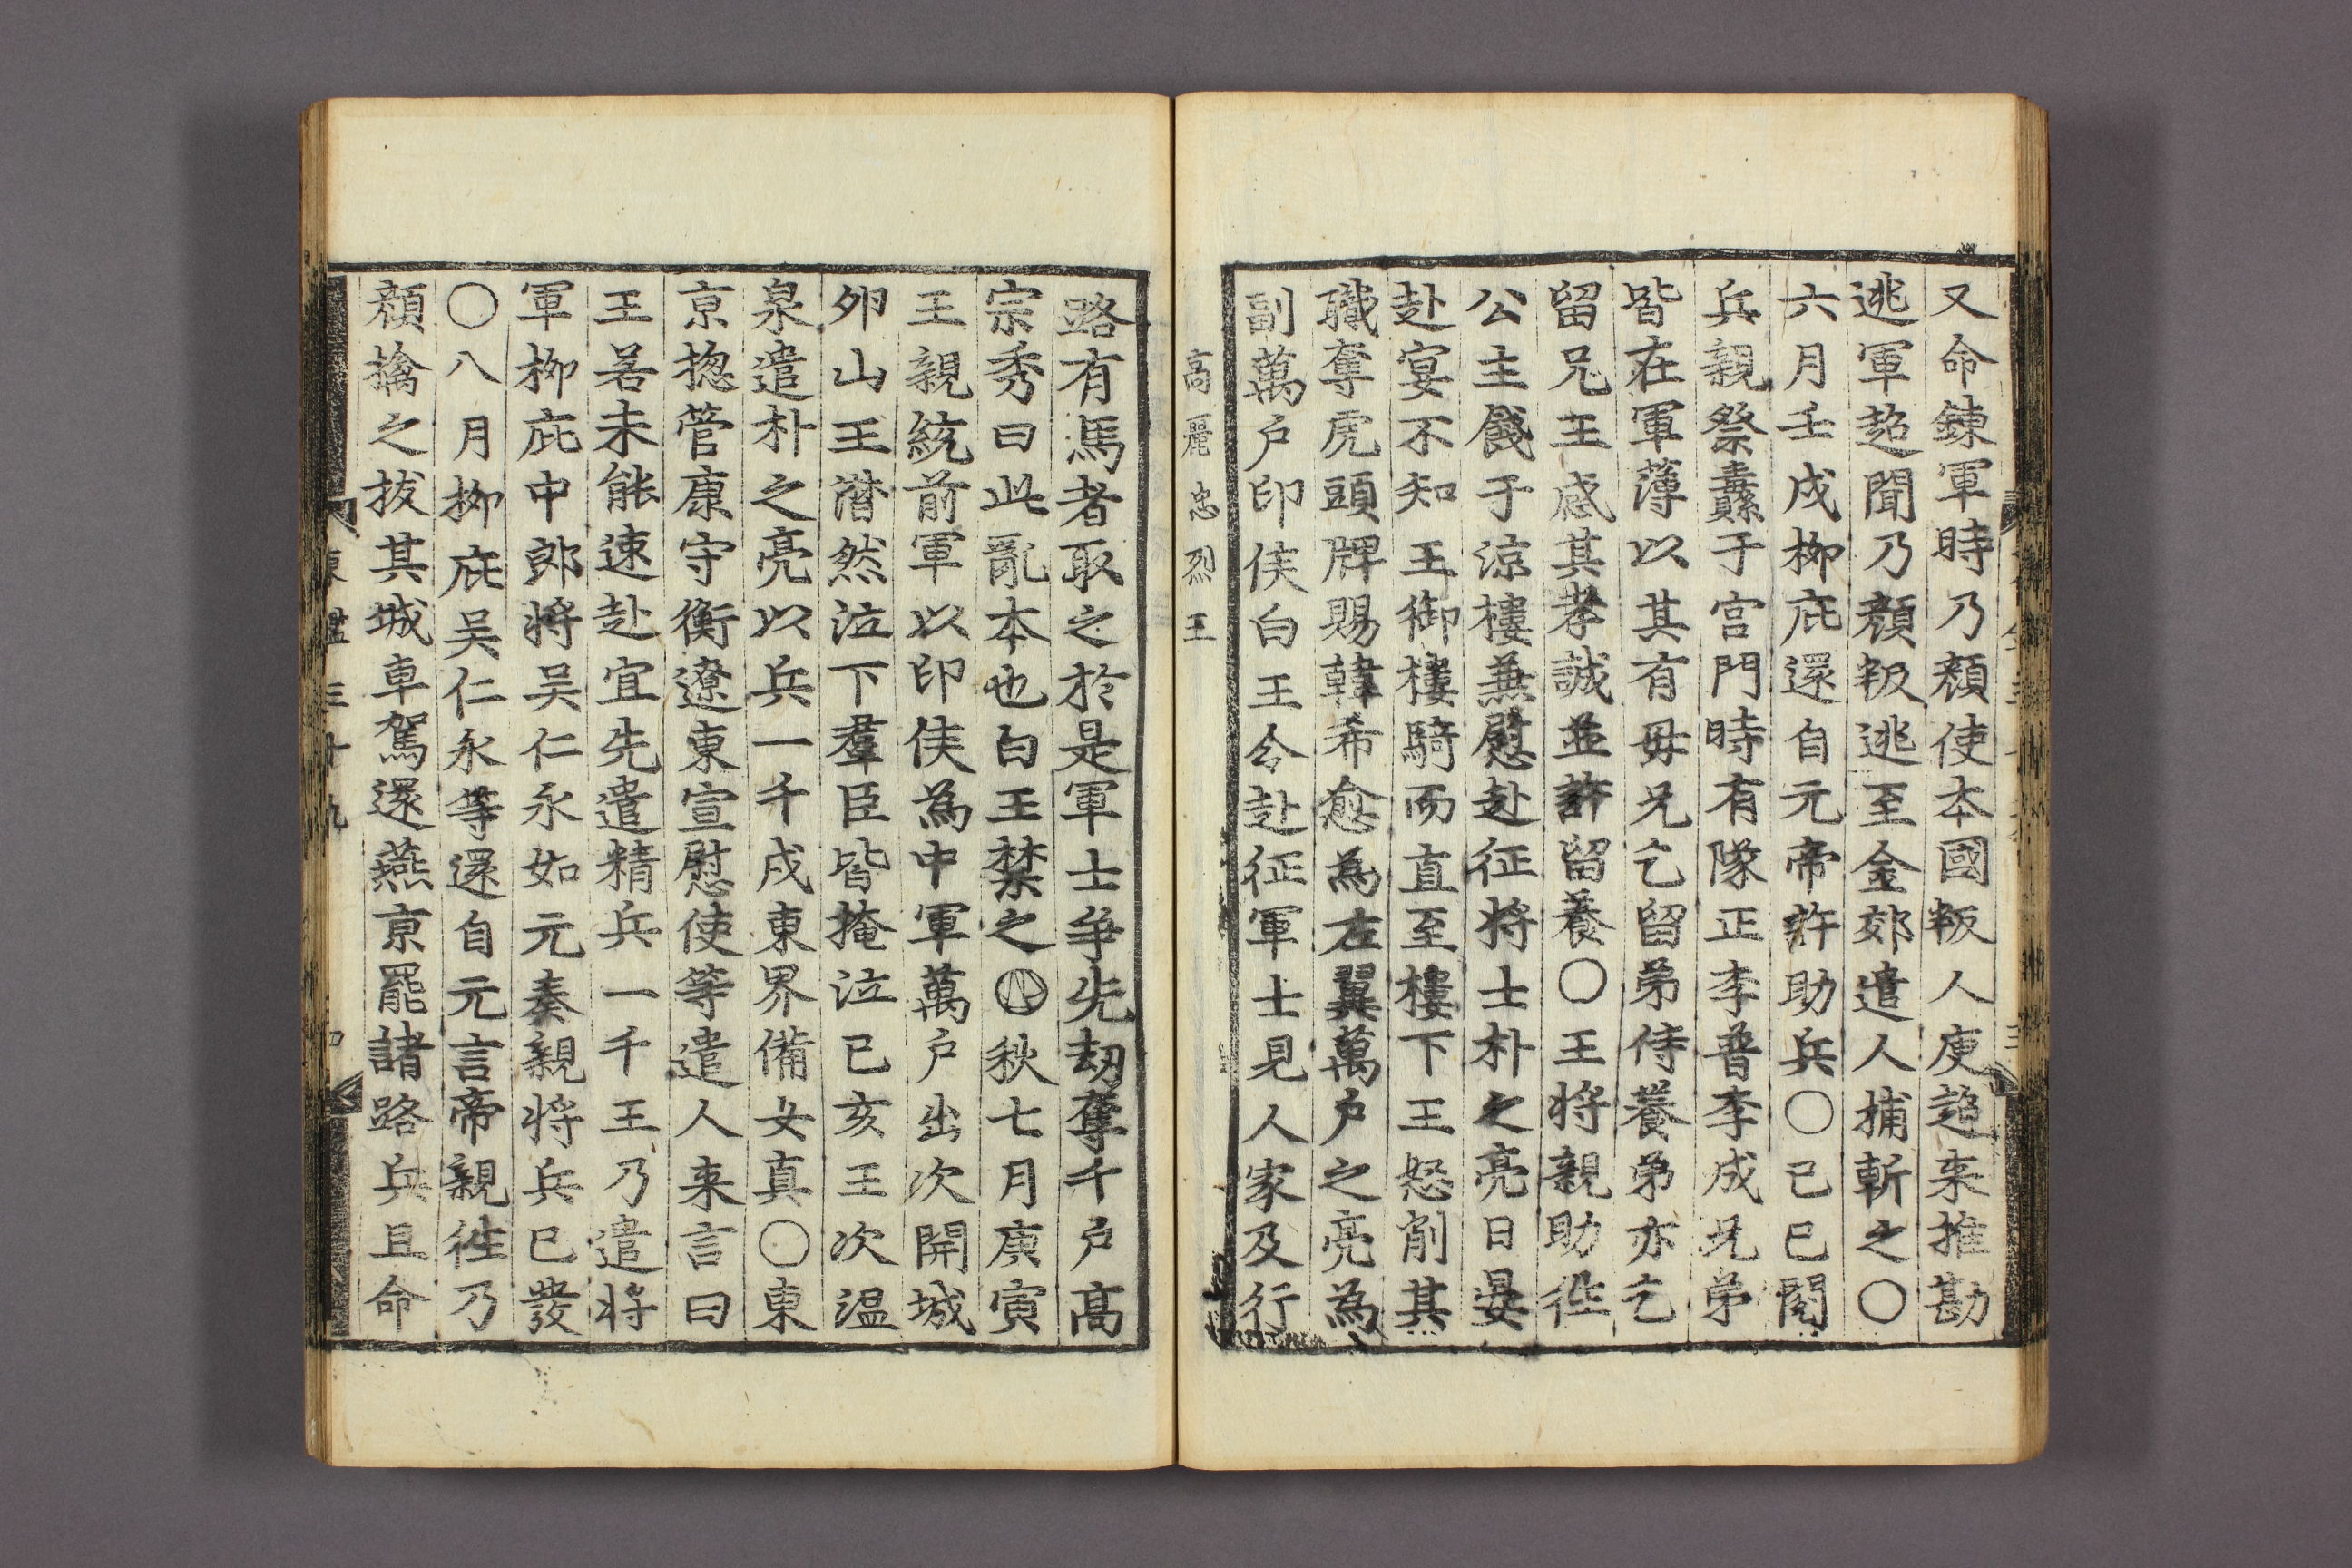 又命鍊軍時乃顔使本國叛人庾超来推勘
逃軍超聞乃顔叛逃至金郊遣人捕斬之〇
六月壬戌栁庇還自元帝許助兵〇己巳閱
兵親祭纛于宫門時有隊正李普李成兄弟
皆在軍薄以其有毋兄乞留弟侍養弟亦乞
留兄王感其孝誠並許留養〇王將親助征
公主餞于涼樓兼慰赴征將士朴之亮日晏
赴宴不知王御樓騎而直至樓下王怒削其
職奪虎頭牌賜韓希愈為左翼萬户之亮為
副萬户印侯白王令赴征軍士見人家及行
高麗忠烈王
路有馬者取之於是軍士争先刼奪千户高
宗秀曰此亂本也白王禁之〇秋七月庚寅
王親統前軍以印侯為中軍萬户出次開城
夘山王潸然泣下羣臣皆掩泣己亥王次温
泉遣朴之亮以兵一千戍東界備女真〇東
京揔管康守衡遼東宣慰使等遣人来言曰
王若未能速赴宜先遣精兵一千王乃遣將
軍栁庇中郎將吴仁永如元奏親將兵已發
〇八月栁庇吴仁永等還自元言帝親征乃
顔擒之拔其城車駕還燕京罷諸路兵且命
東鑑三十九